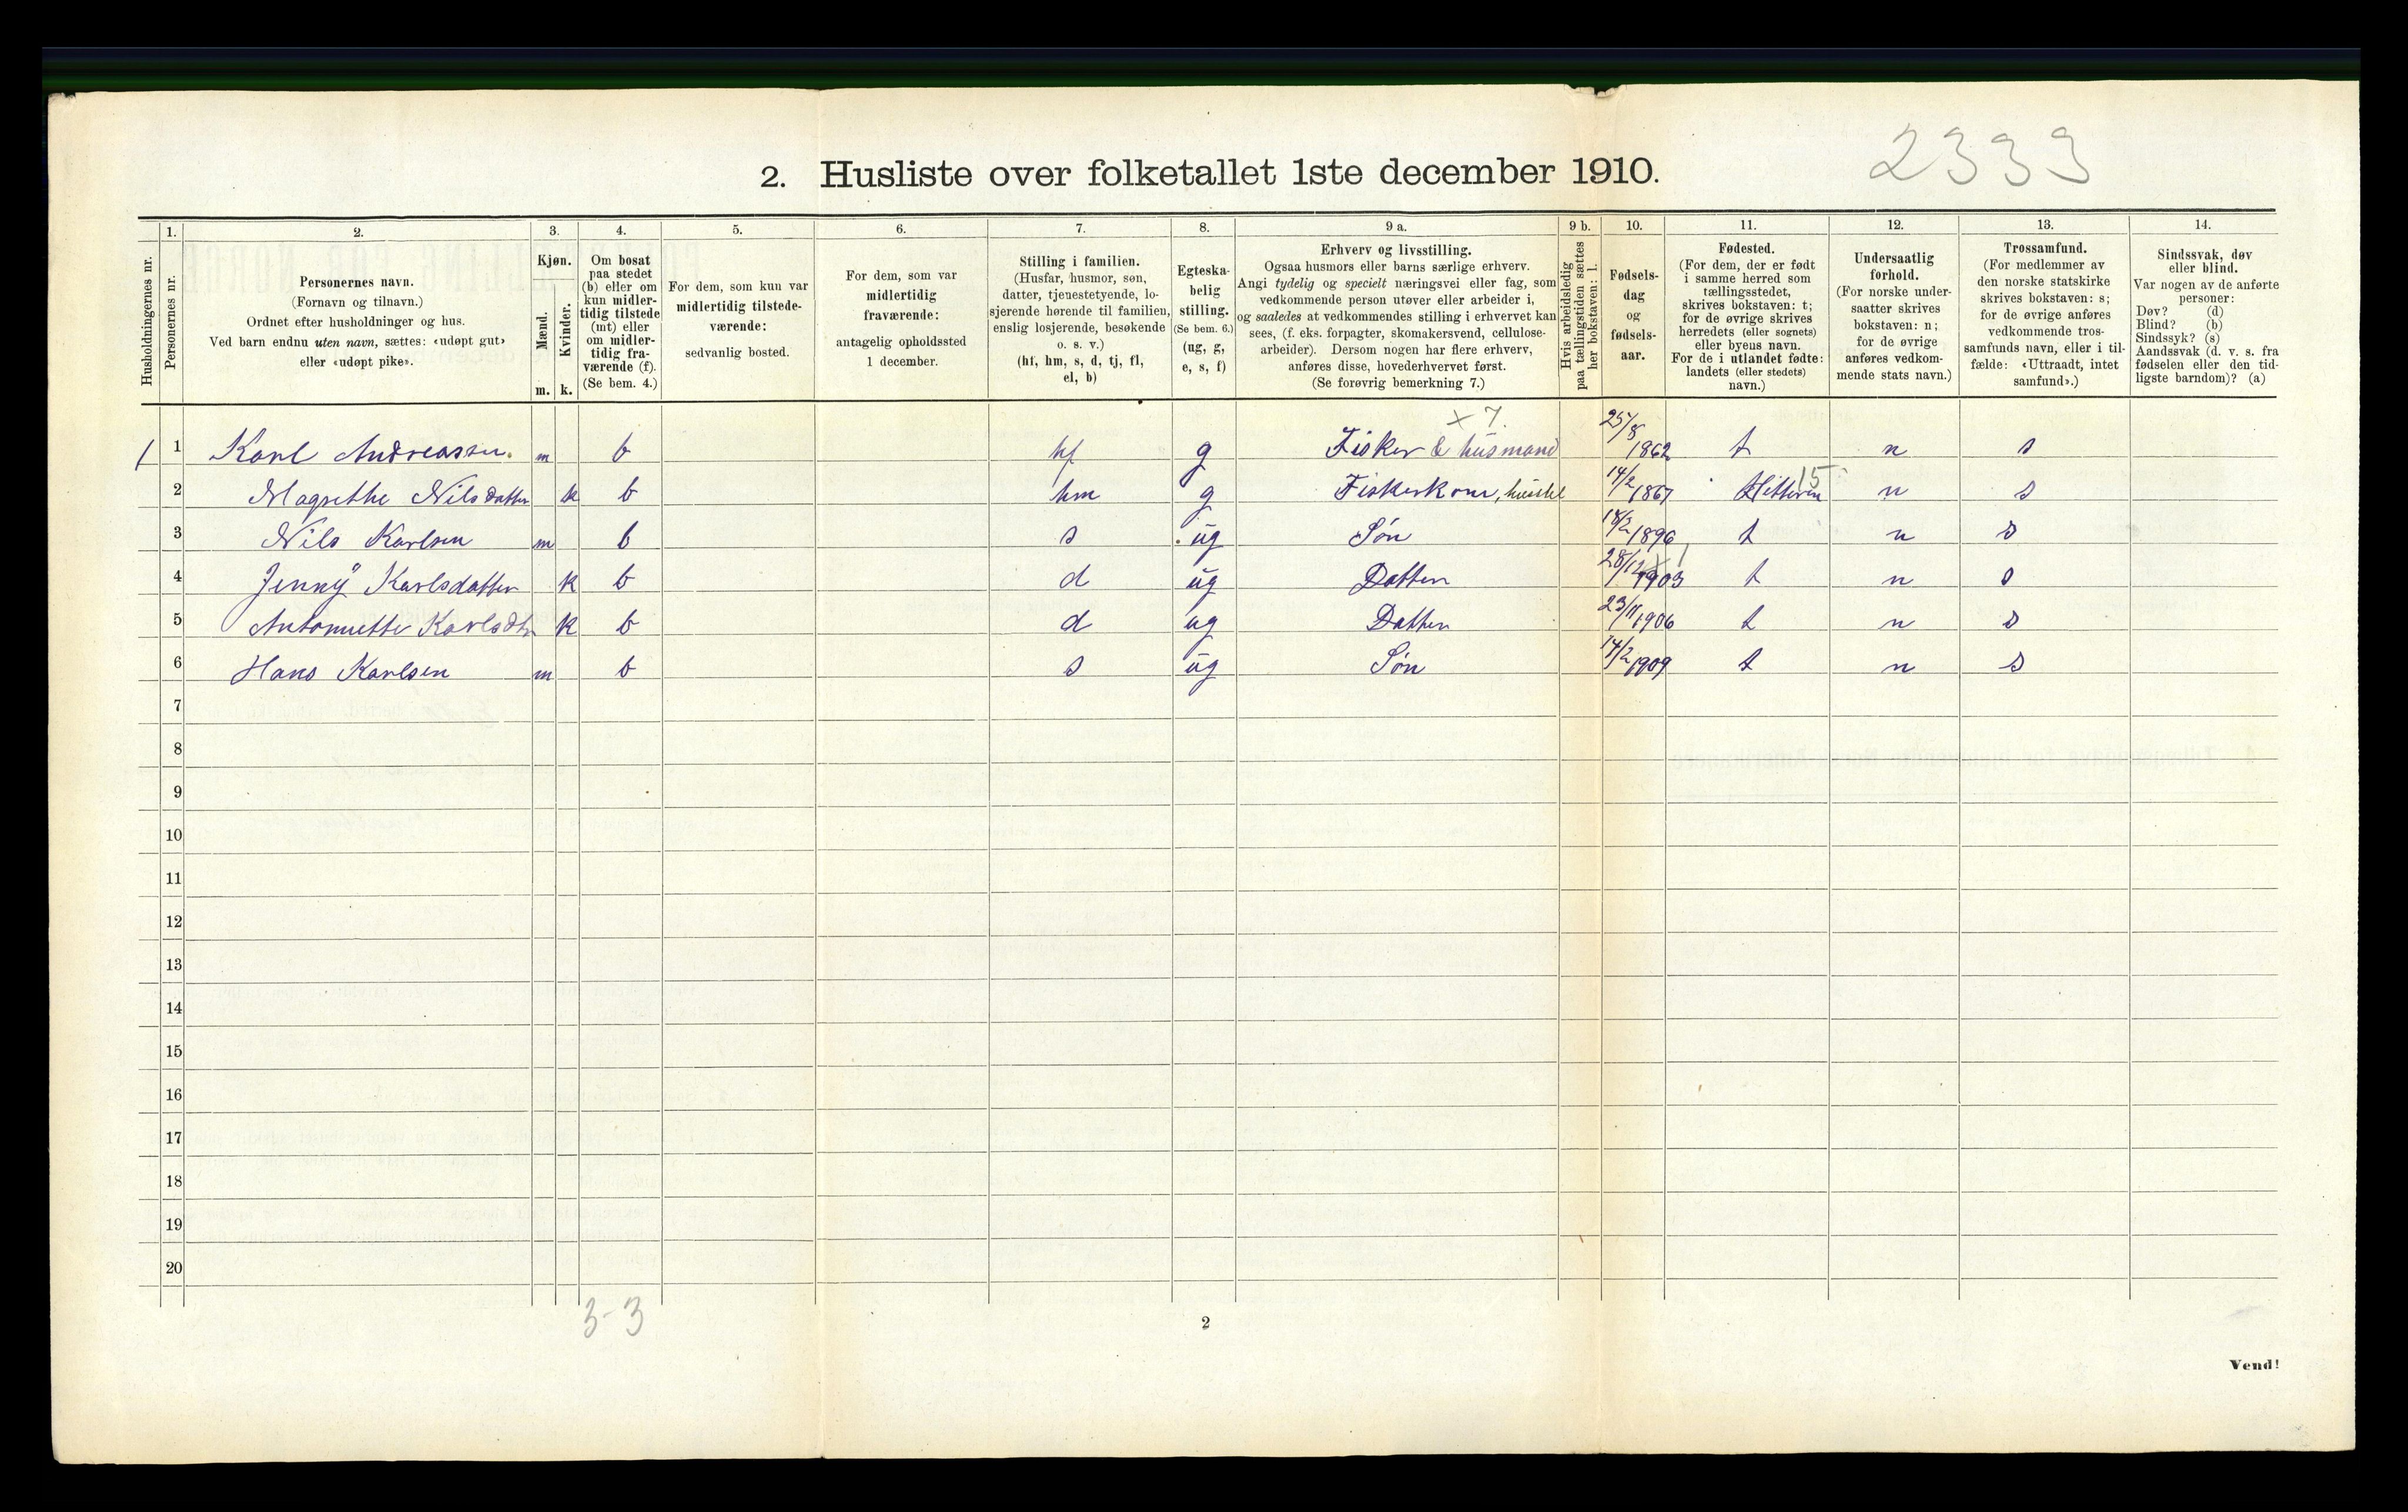 2333
2. Husliste over folketallet 1ste december 1910.
Husholdningernes nr.
1. Personernes nr.
2. Personernes navn.
(Fornavn og tilnavn.)
Ordnet efter husholdninger og hus.
Ved barn endnu uten navn, sættes: «udøpt gut»
eller «udøpt pike».
3. Kjøn.
Mænd. m.
Kvinder. k.
4. Om bosat
paa stedet
(b) eller om
kun midler-
tidig tilstede
(mt) eller
om midler-
tidig fra-
værende (f).
(Se bem. 4.)
5. For dem, som kun var
midlertidig tilstede-
værende:
sedvanlig bosted.
6. For dem, som var
midlertidig
fraværende:
antagelig opholdssted
1 december.
7. Stilling i familien.
(Husfar, husmor, søn,
datter, tjenestetyende, lo-
sjerende hørende til familien,
enslig losjerende, besøkende
o. s. v.)
(hf, hm, s, d, tj, fl,
el, b)
8. Egteska-
belig
stilling.
(Se bem. 6.)
(ug, g,
e, s, f)
9 a. Erhverv og livsstilling.
Ogsaa husmors eller barns særlige erhverv.
Angi tydelig og specielt næringsvei eller fag, som
vedkommende person utøver eller arbeider i,
og saaledes at vedkommendes stilling i erhvervet kan
sees, (f. eks. forpagter, skomakersvend, cellulose-
arbeider). Dersom nogen har flere erhverv,
anføres disse, hovederhvervet først.
(Se forøvrig bemerkning 7.)
9 b. Hvis arbeidsledig
paa tællingstiden sættes
her bokstaven: l.
10. Fødsels-
dag
og
fødsels-
aar.
11. Fødested.
(For dem, der er født
i samme herred som
tællingsstedet,
skrives bokstaven: t;
for de øvrige skrives
herredets (eller sognets)
eller byens navn.
For de i utlandet fødte:
landets (eller stedets)
navn.)
12. Undersaatlig
forhold.
(For norske under-
saatter skrives
bokstaven: n;
for de øvrige
anføres vedkom-
mende stats navn.)
13. Trossamfund.
(For medlemmer av
den norske statskirke
skrives bokstaven: s;
for de øvrige anføres
vedkommende tros-
samfunds navn, eller i til-
fælde: «Uttraadt, intet
samfund».)
14. Sindssvak, døv
eller blind.
Var nogen av de anførte
personer:
Døv? (d)
Blind? (b)
Sindssyk? (s)
Aandssvak (d. v. s. fra
fødselen eller den tid-
ligste barndom)? (a)
x 7.
1 1 Karl Andreassen. m b hf g Fisker & husmand 25/8 1862 t n s
2 Magrethe Nilsdatter k b hm g Fiskerkone, husstel 14/2 1867 Hitteren 15 n s
3 Nils Karlsen m b s ug Søn 18/2 1896 t n s
4 Jenny Karlsdatter k b d ug Datter 28/12 1903 t n s
5 Antonnette Karlsdtr k b d ug Datter 23/11 1906 t n s
6 Hans Karlsen m b s ug Søn 14/2 1909 t n s
7
8
9
10
11
12
13
14
15
16
17
18
19
20
3-3
2
Vend!